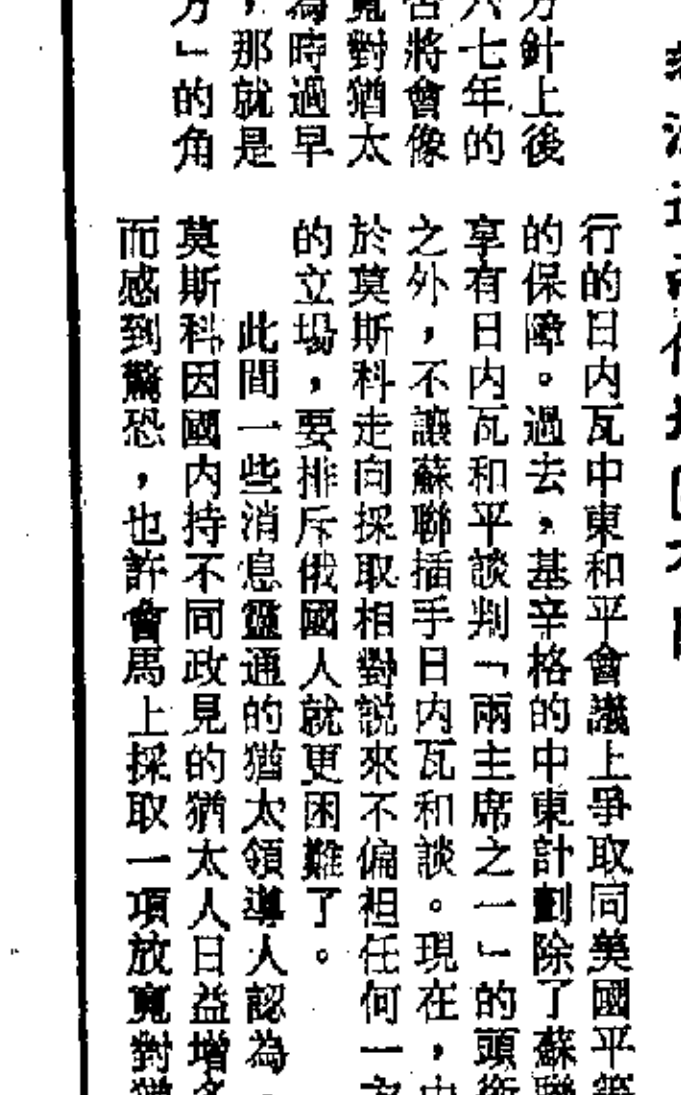 方針上後
六七年的
否將會像
寬對猶太
為時過早
，那就是
方」的角
行的日内瓦中東和平會議上爭取同美國平等
的保障。過去，基辛格的中東計劃除了蘇聯
享有日内瓦和平談判「兩主席之一」的頭銜
之外，不讓蘇聯插手日内瓦和談。現在，由
於莫斯科走向採取相對説來不偏袒任何一方
的立場，要排斥俄國人就更困難了。
此間一些消息靈通的猶太領導人認為，
莫斯科因國内持不同政見的猶太人日益增多
而感到驚恐，也許會馬上採取一項放寬對猶